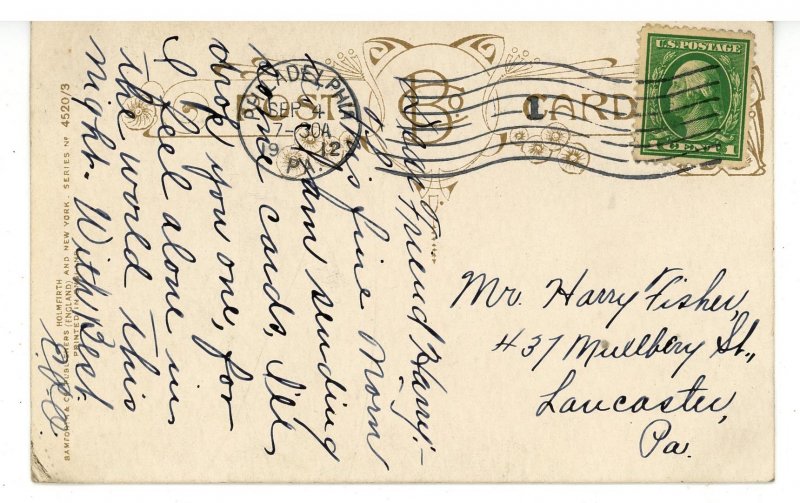 POST CARD
B Co.
U.S. POSTAGE
1 CENT 1
PHILADELPHIA
SEP 4
7-30A
1912
PA.
1
Friend Harry!-
this fine Morn
am sending
some cards, I'll
drop you one, for
I feel alone in
the world this
night. With Best
Mr. Harry Fisher,
437 Mullbery St.,
Lancaster,
Pa.
HOLMFIRTH
BAMFORTH & CO. PUBLISHERS (ENGLAND) AND NEW YORK. SERIES Nº 4520/3
PRINTED IN